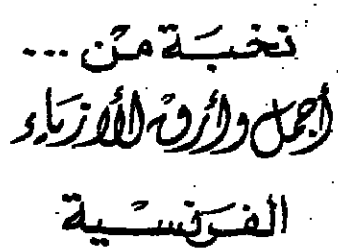 نخبة من ...
أجمل وأرق الأزياء
الفرنسية